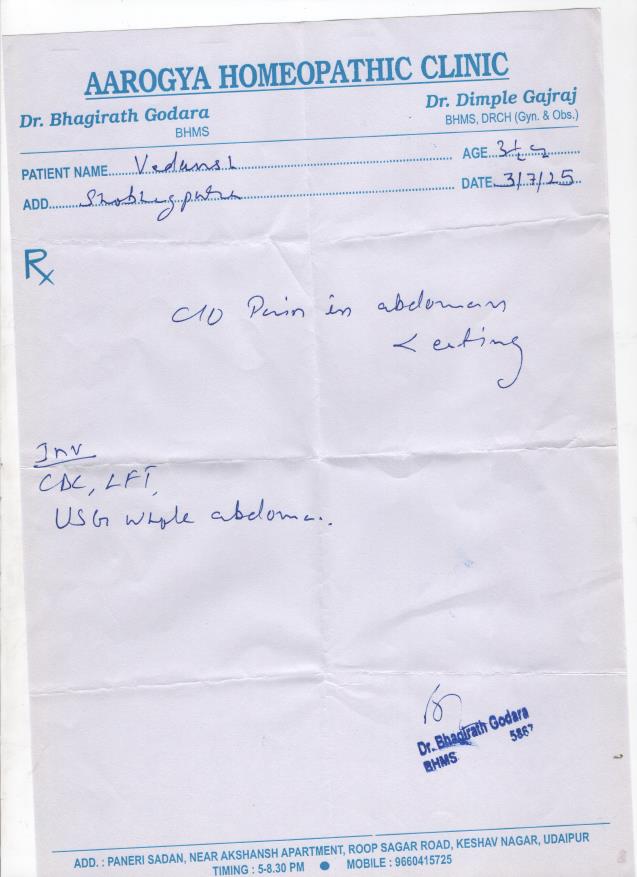 AAROGYA HOMEOPATHIC CLINIC
Dr. Bhagirath Godara
BHMS
Dr. Dimple Gajraj
BHMS, DRCH (Gyn. & Obs.)
PATIENT NAME.... Vedansi
AGE... 3½ y
ADD....
DATE. 3/7/25
Rx
C/O Pain in abdoman
< eating
Inv
CBC, LFT,
USG whole abdoma..
Dr. Bhagirath Godara
BHMS 5867
ADD. : PANERI SADAN, NEAR AKSHANSH APARTMENT, ROOP SAGAR ROAD, KESHAV NAGAR, UDAIPUR
TIMING : 5-8.30 PM ● MOBILE : 9660415725